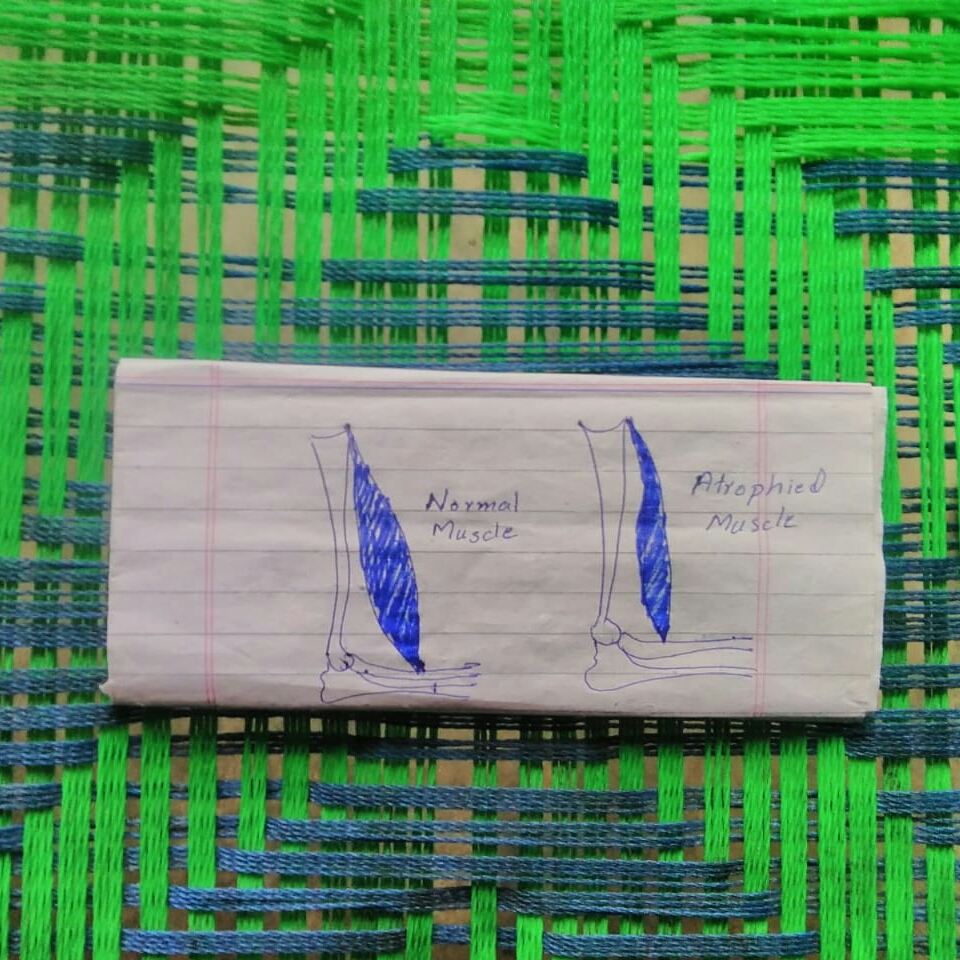 Normal
Muscle
Atrophied
Muscle